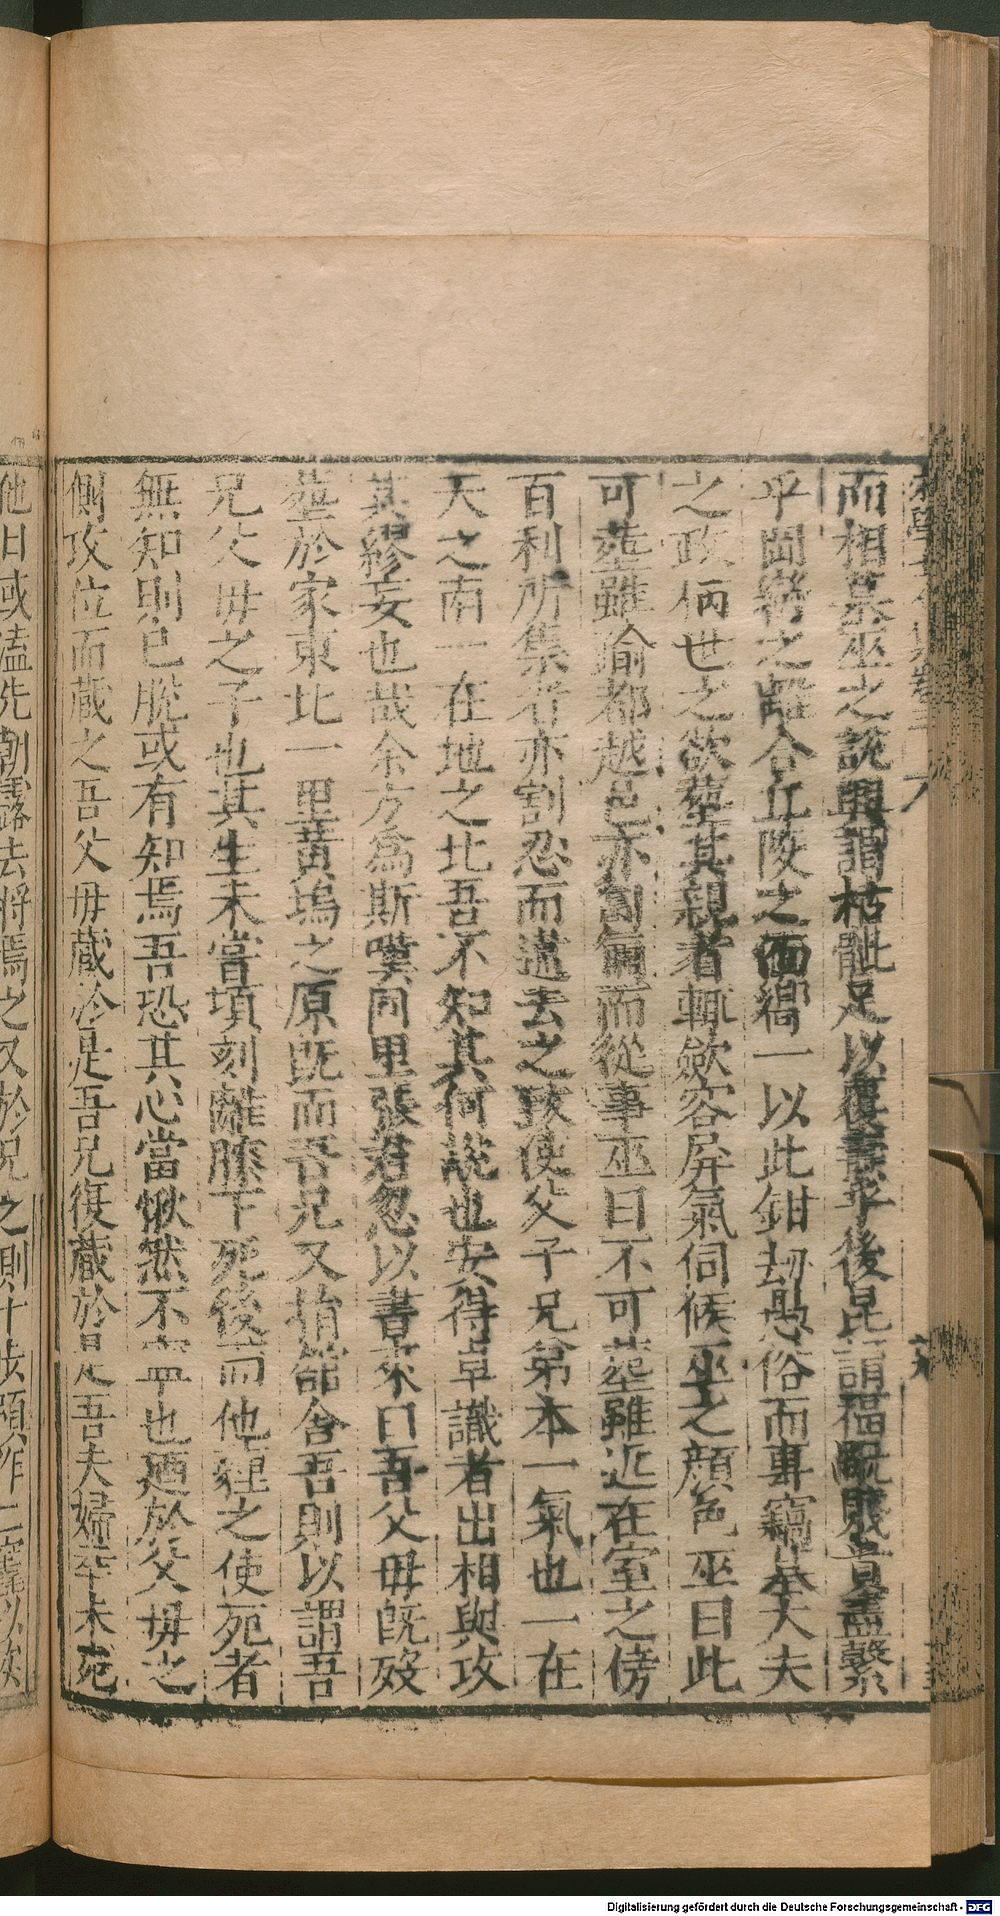 而相墓巫之說興謂枯骴足以覆壽乎後昆謂福賤貴盡繫
乎岡巒之離合丘陵之面鄉一以此鉗劫愚俗而專竊士大夫
之政柄世之欲塟其親者輒斂容屏氣伺候巫之顔色巫曰此
可塟雖踰都越邑亦匍匐而從事巫曰不可塟雖近在室之傍
百利所集者亦割忍而違去之致使父子兄弟本一氣也一在
天之南一在地之北吾不知其何說也安得卓識者出相與攻
其繆妄也哉余方為斯嘆同里張君忽以書來曰吾父毋旣殁
塟於家東北一里黄塢之原旣而吾兄又捐舘舍吾則以謂吾
兄父毋之子也其生未嘗頃刻離膝下死後而他薶之使死者
無知則已脫或有知焉吾恐其心當愀然不寧也廼於父毋之
側攻位而蔵之吾父毋蔵於是吾兄復蔵於是吾夫婦幸未死
他日或溘先朝露去將焉之又於兄之側廿步預作二窆以俟
Digitalisierung gefördert durch die Deutsche Forschungsgemeinschaft - DFG